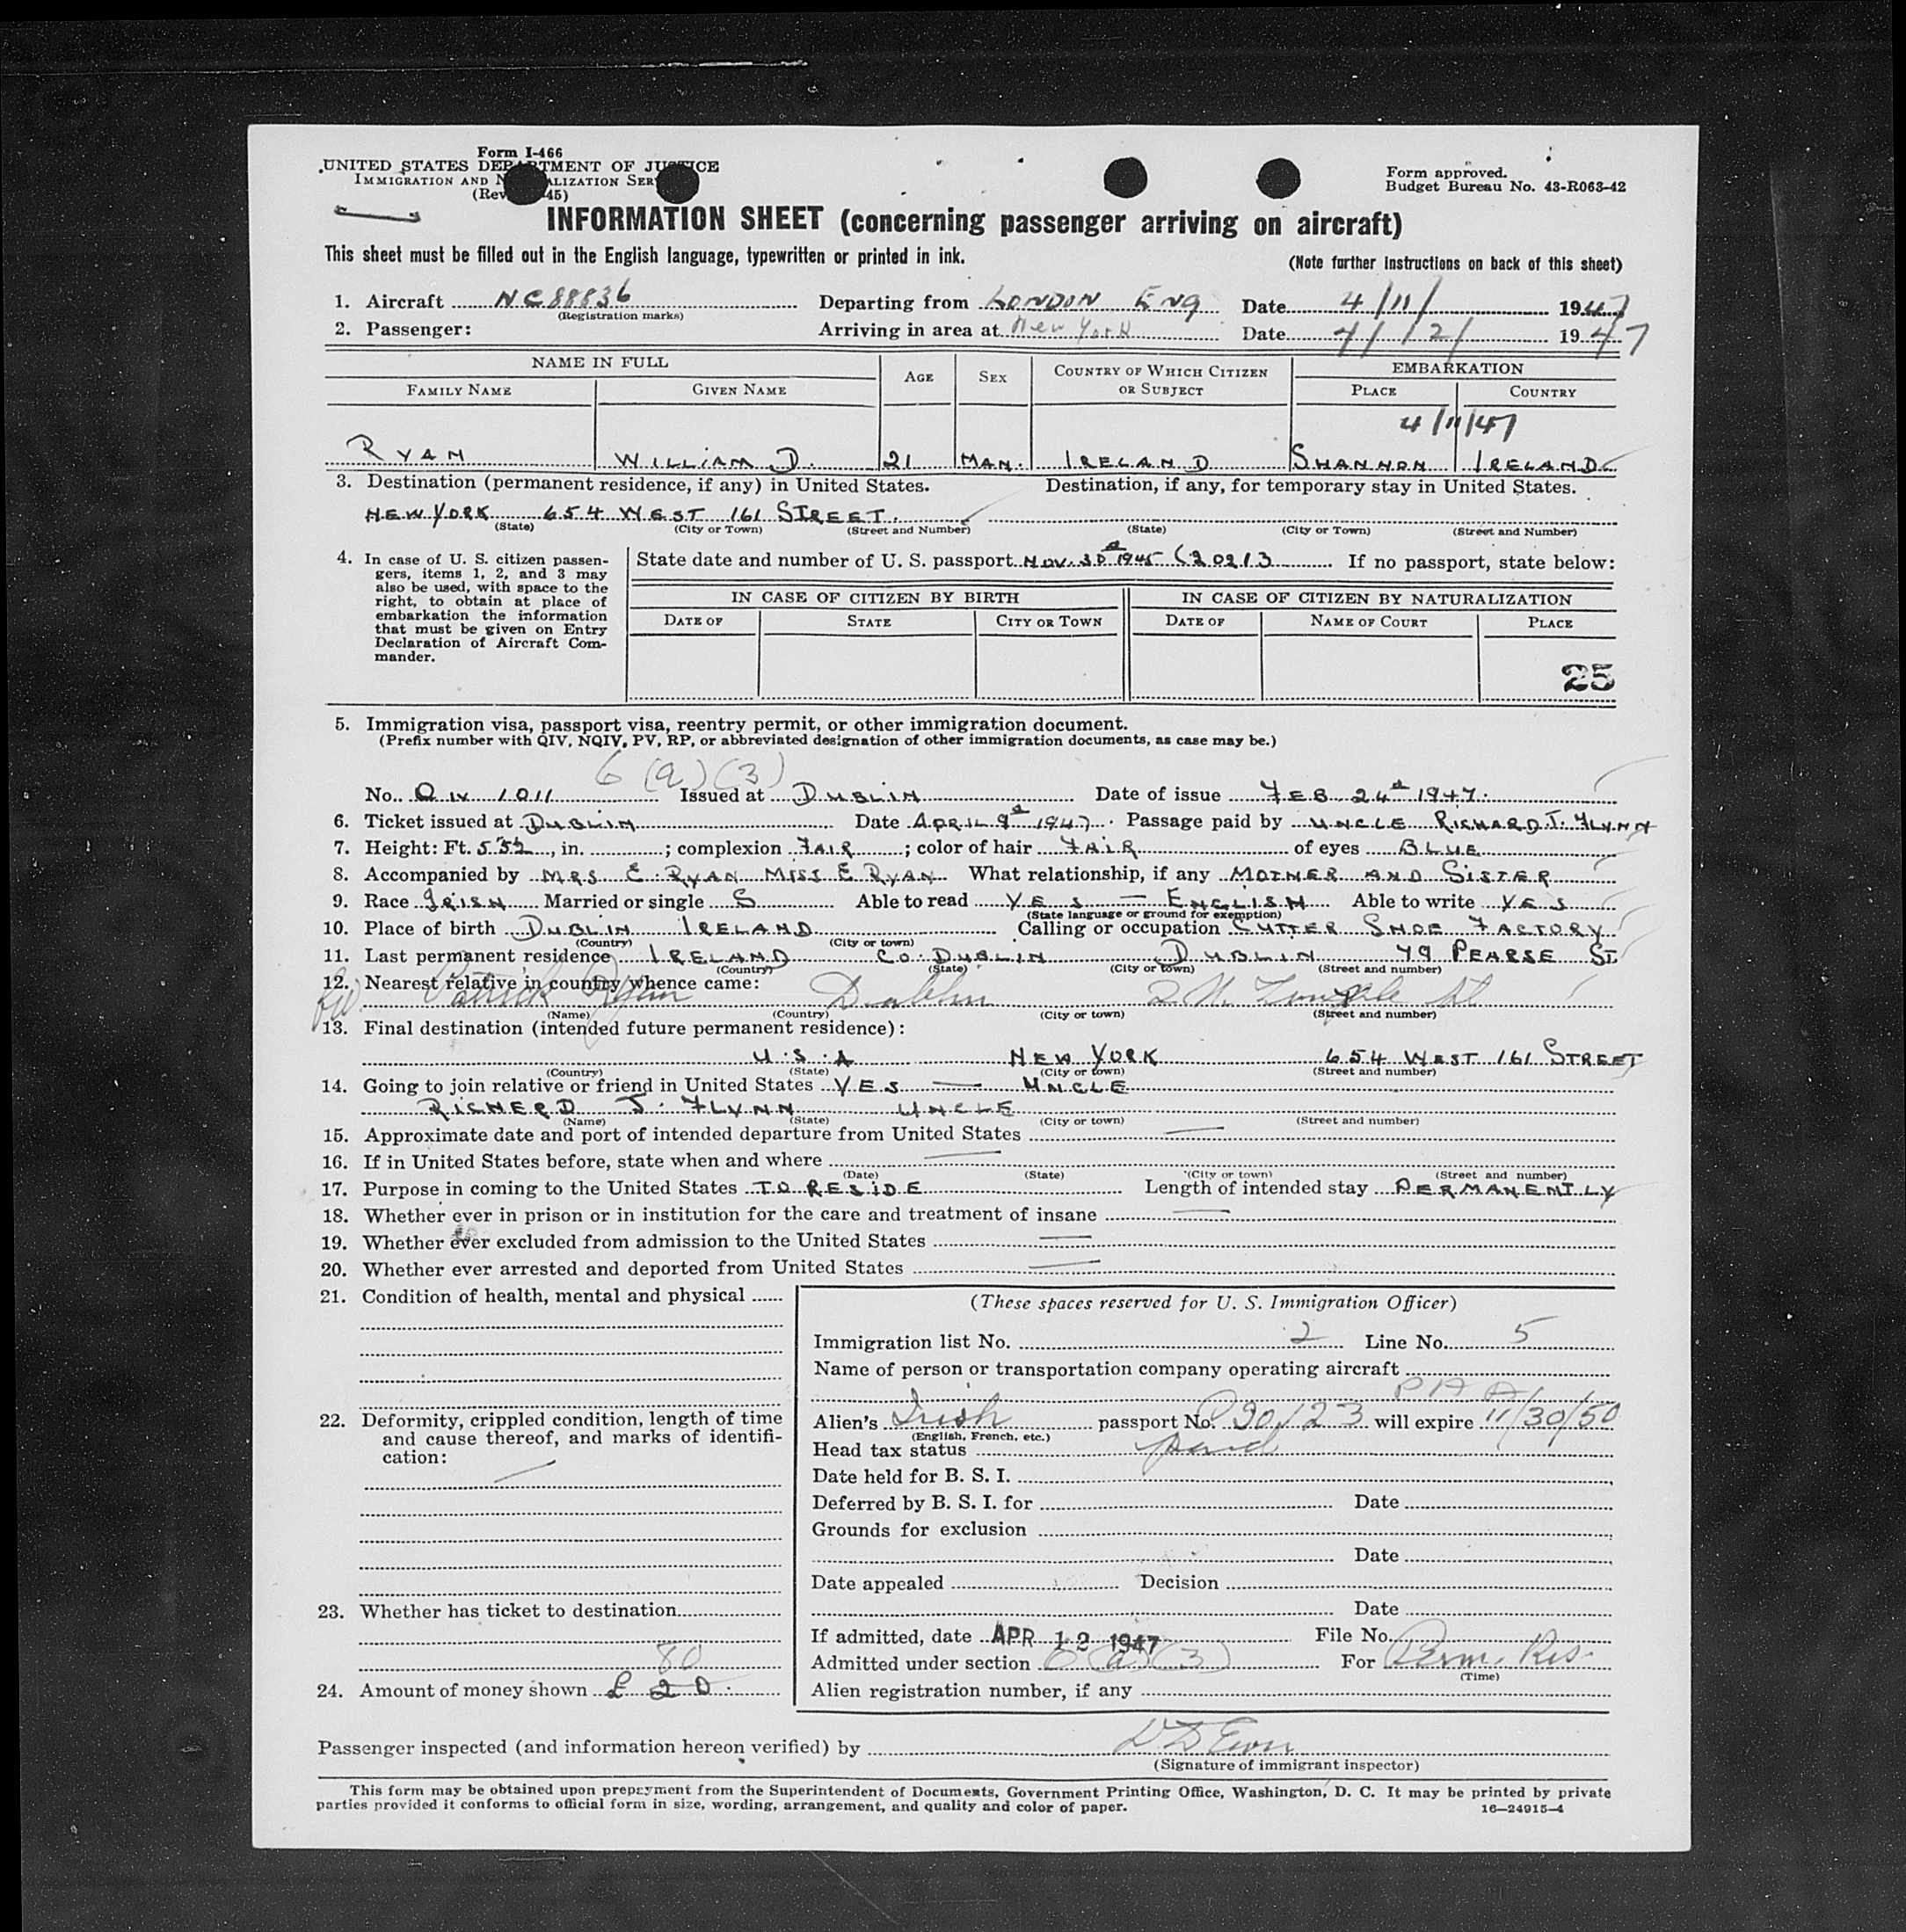 Form I-466
UNITED STATES DEPARTMENT OF JUSTICE
IMMIGRATION AND NATURALIZATION SERVICE
(Rev. 45)
Form approved.
Budget Bureau No. 43-R063-42
INFORMATION SHEET (concerning passenger arriving on aircraft)
This sheet must be filled out in the English language, typewritten or printed in ink.
(Note further instructions on back of this sheet)
1. Aircraft NC88836 Departing from LONDON ENG Date 4/11/ 1947
(Registration marks)
2. Passenger: Arriving in area at New York Date 4/12/ 1947
NAME IN FULL AGE SEX COUNTRY OF WHICH CITIZEN OR SUBJECT EMBARKATION
FAMILY NAME GIVEN NAME PLACE COUNTRY
4/11/47
RYAN WILLIAM D. 21 MAN. IRELAND SHANNON IRELAND
3. Destination (permanent residence, if any) in United States. Destination, if any, for temporary stay in United States.
NEW YORK 654 WEST 161 STREET.
(State) (City or Town) (Street and Number) (State) (City or Town) (Street and Number)
4. In case of U. S. citizen passengers, items 1, 2, and 3 may also be used, with space to the right, to obtain at place of embarkation the information that must be given on Entry Declaration of Aircraft Commander.
State date and number of U. S. passport NOV. 30 1945 (20213 If no passport, state below:
IN CASE OF CITIZEN BY BIRTH IN CASE OF CITIZEN BY NATURALIZATION
DATE OF STATE CITY OR TOWN DATE OF NAME OF COURT PLACE
25
5. Immigration visa, passport visa, reentry permit, or other immigration document.
(Prefix number with QIV, NQIV, PV, RP, or abbreviated designation of other immigration documents, as case may be.)
6 (a) (3)
No. Q IV 1011 Issued at DUBLIN Date of issue FEB. 24 1947.
6. Ticket issued at DUBLIN Date APRIL 9 1947. Passage paid by UNCLE RICHARD J. FLYNN
7. Height: Ft. 5.5½, in. ; complexion FAIR ; color of hair FAIR of eyes BLUE
8. Accompanied by MRS E. RYAN MISS E RYAN What relationship, if any MOTHER AND SISTER
9. Race IRISH Married or single S Able to read YES — ENGLISH Able to write YES
(State language or ground for exemption)
10. Place of birth DUBLIN IRELAND Calling or occupation CUTTER SHOE FACTORY
(Country) (City or town)
11. Last permanent residence IRELAND CO. DUBLIN DUBLIN 49 PEARSE ST.
(Country) (State) (City or town) (Street and number)
12. Nearest relative in country whence came:
Patrick Ryan Dublin 2 N. Temple St
(Name) (Country) (City or town) (Street and number)
13. Final destination (intended future permanent residence):
U.S.A NEW YORK 654 WEST 161 STREET
(Country) (State) (City or town) (Street and number)
14. Going to join relative or friend in United States YES — UNCLE
RICHERD J. FLYNN UNCLE
(Name) (State) (City or town) (Street and number)
15. Approximate date and port of intended departure from United States —
16. If in United States before, state when and where —
(Date) (State) (City or town) (Street and number)
17. Purpose in coming to the United States TO RESIDE Length of intended stay PERMANENTLY
18. Whether ever in prison or in institution for the care and treatment of insane —
19. Whether ever excluded from admission to the United States —
20. Whether ever arrested and deported from United States —
21. Condition of health, mental and physical
22. Deformity, crippled condition, length of time and cause thereof, and marks of identification:
—
23. Whether has ticket to destination
80
24. Amount of money shown £ 20.
(These spaces reserved for U. S. Immigration Officer)
Immigration list No. 2 Line No. 5
Name of person or transportation company operating aircraft
PAA
Alien's Irish passport No. P 20123 will expire 11/30/50
(English, French, etc.)
Head tax status paid
Date held for B. S. I.
Deferred by B. S. I. for Date
Grounds for exclusion
Date
Date appealed Decision
Date
If admitted, date APR 12 1947 File No.
Admitted under section 6 (a) (3) For Perm. Res.
(Time)
Alien registration number, if any
Passenger inspected (and information hereon verified) by
(Signature of immigrant inspector)
This form may be obtained upon prepayment from the Superintendent of Documents, Government Printing Office, Washington, D. C. It may be printed by private
parties provided it conforms to official form in size, wording, arrangement, and quality and color of paper.
16—24915-4